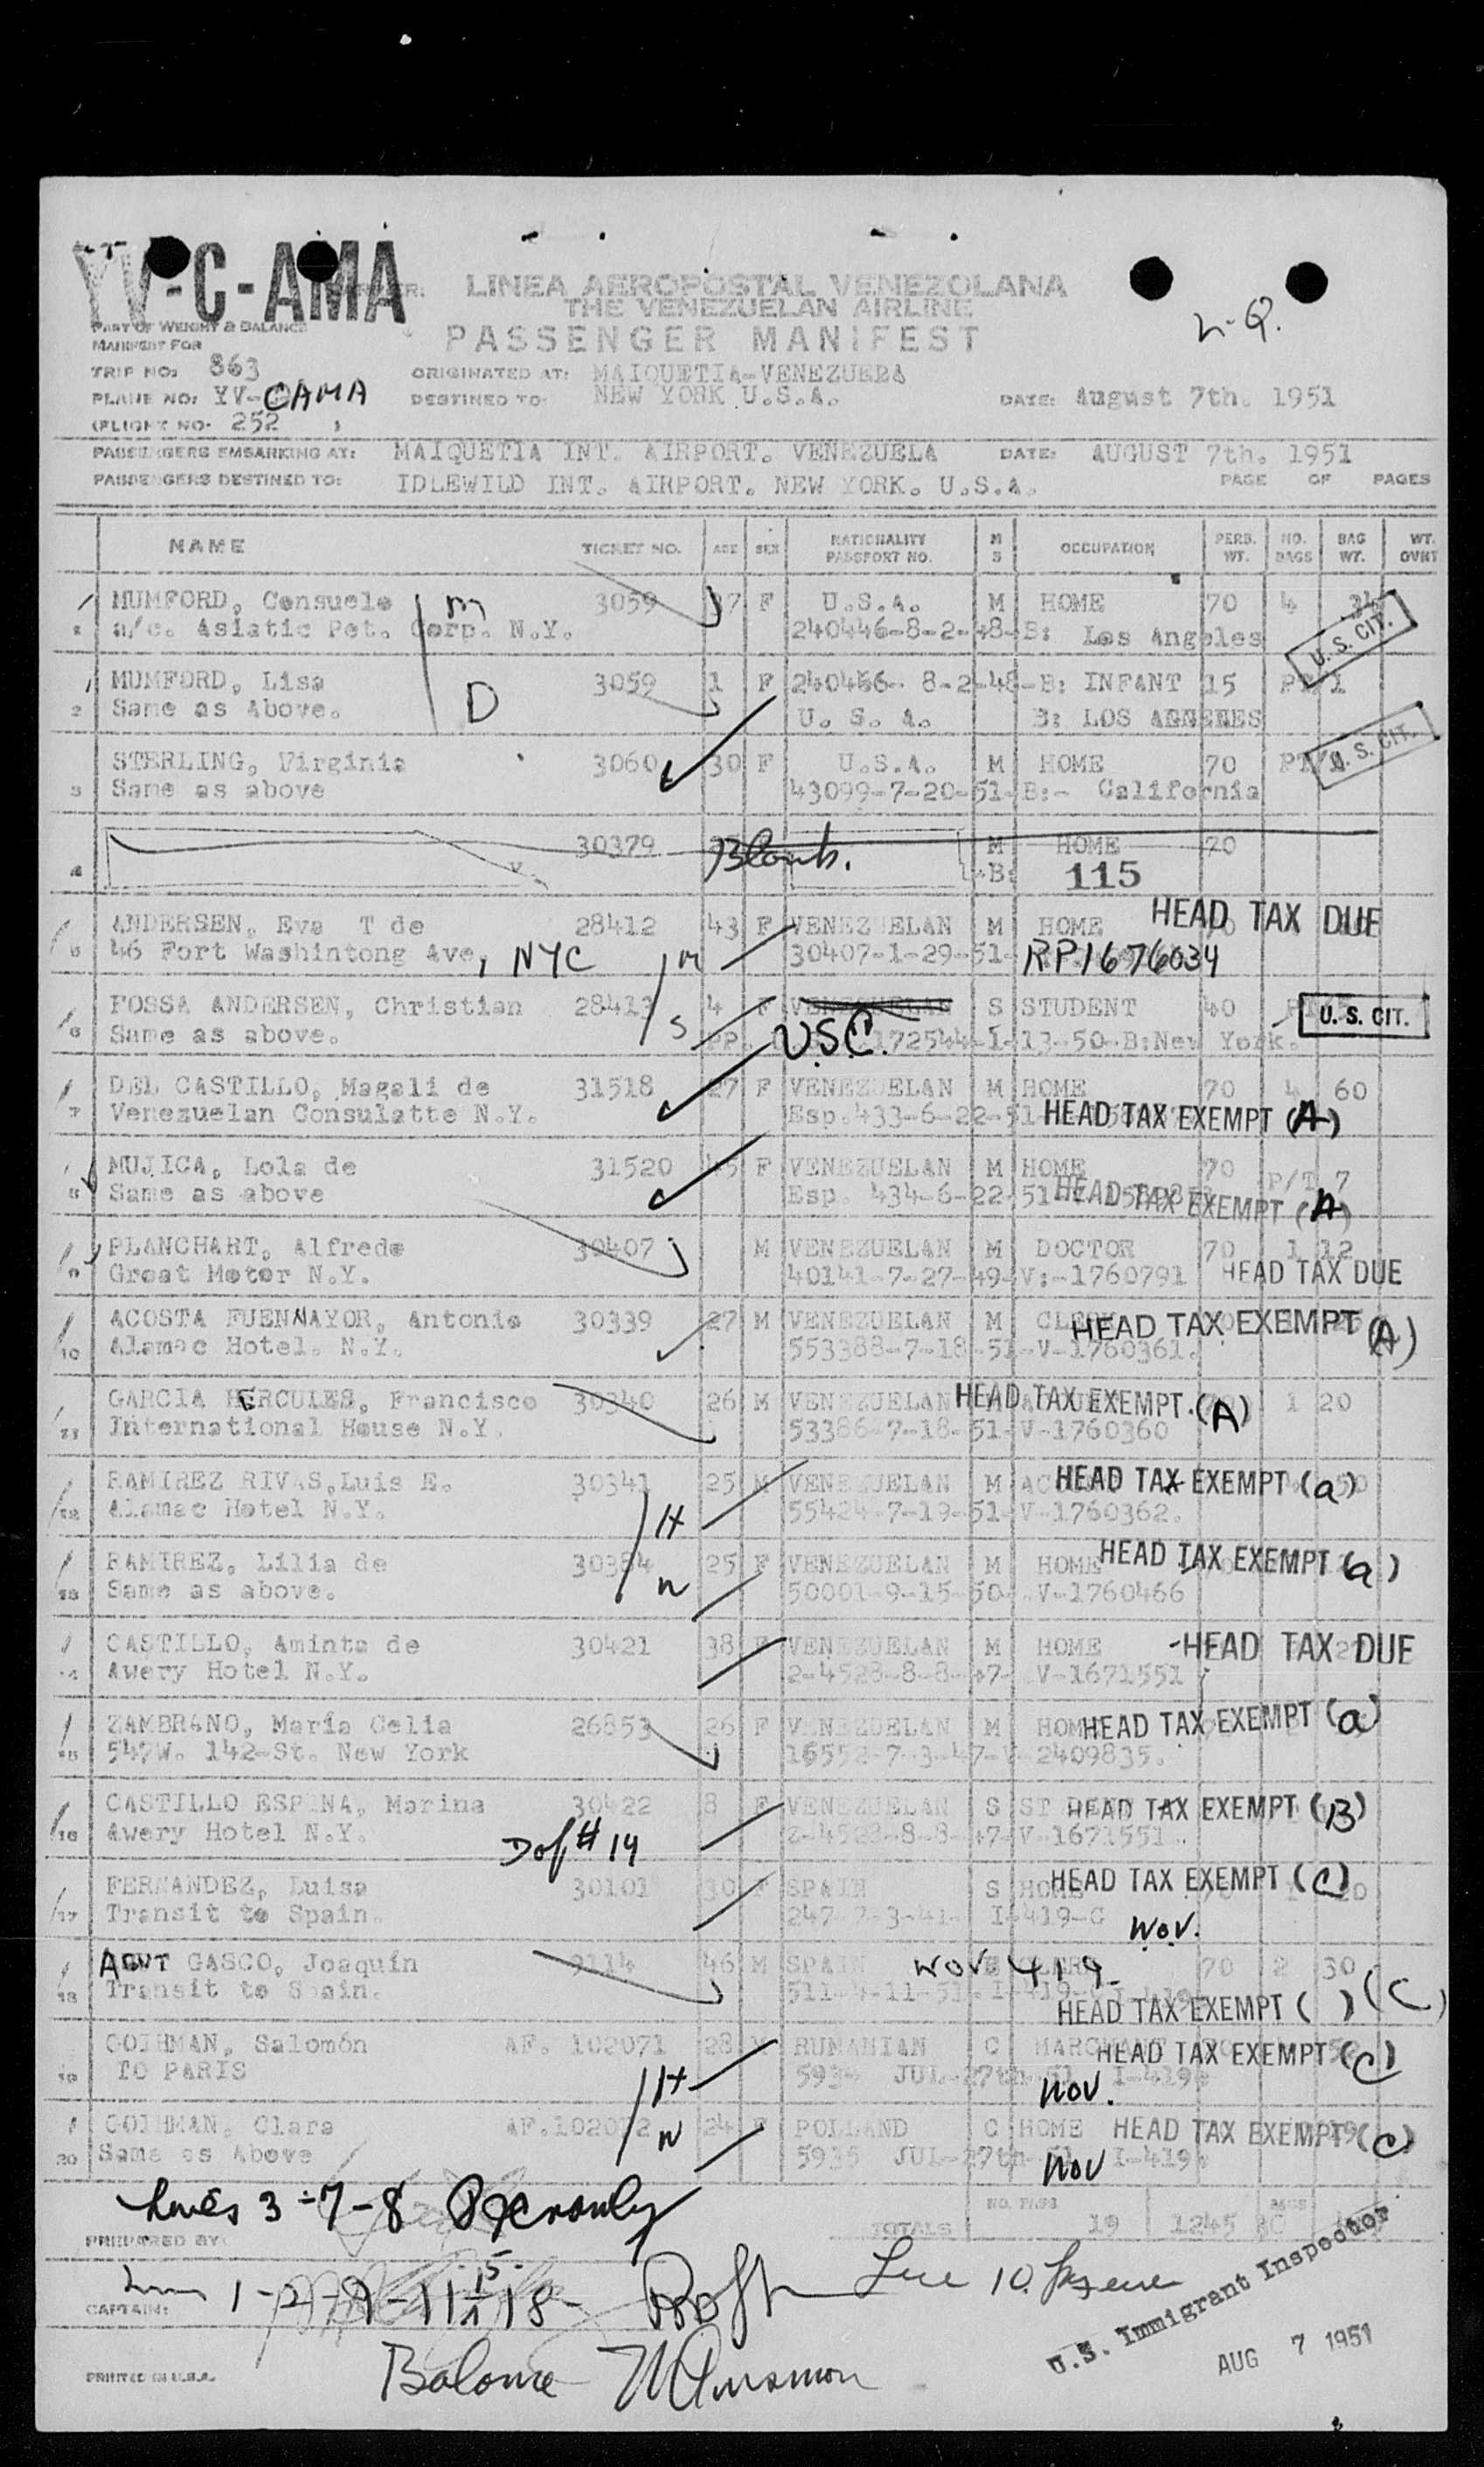 YV-C-AMA
LINEA AEROPOSTAL VENEZOLANA
THE VENEZUELAN AIRLINE
PASSENGER MANIFEST
L-Q.
PART OF WEIGHT & BALANCE
MANIFEST FOR
TRIP NO: 863 ORIGINATED AT: MAIQUETIA-VENEZUEBA
PLANE NO: YV-CAMA DESTINED TO: NEW YORK U.S.A. DATE: August 7th. 1951
(FLIGHT NO. 252 )
PASSENGERS EMBARKING AT: MAIQUETIA INT. AIRPORT. VENEZUELA DATE: AUGUST 7th. 1951
PASSENGERS DESTINED TO: IDLEWILD INT. AIRPORT. NEW YORK. U.S.A. PAGE OF PAGES
NAME TICKET NO. AGE SEX NATIONALITY PASSPORT NO. M S OCCUPATION PERS. WT. NO. BAGS BAG WT. WT. OVNT
MUMFORD, Consuelo m 3059 37 F U.S.A. M HOME 70 4 34
a/c. Asiatic Pet. Corp. N.Y. 240446-8-2-48-B: Los Angeles U.S. CIT.
MUMFORD, Lisa 3059 1 F 240466- 8-2-48-B: INFANT 15 PT/1
2 Same as Above. D U. S. A. B: LOS
STERLING, Virginia 3060 30 F U.S.A. M HOME 70 U.S. CIT.
3 Same as above 43099-7-20-51-B:- California
30379 Blank. M HOME 70
4 B: 115
ANDERSEN, Eva T de 28412 43 F VENEZUELAN M HOME HEAD TAX DUE
46 Fort Washintong Ave, NYC m 30407-1-29-51- RP1676034
FOSSA ANDERSEN, Christian 28413 4 F VENEZUELAN S STUDENT 40 U.S. CIT.
6 Same as above. S PP. USC. 172544-1-13-50-B:New York.
DEL CASTILLO, Magali de 31518 27 F VENEZUELAN M HOME 70 4 60
7 Venezuelan Consulatte N.Y. Esp.433-6-22-51 HEAD TAX EXEMPT (A)
MUJICA, Lola de 31520 45 F VENEZUELAN M HOME 70 P/T 7
Same as above Esp. 434-6-22-51 HEAD TAX EXEMPT (A)
PLANCHART, Alfredo 30407 M VENEZUELAN M DOCTOR 70 1 12
9 Great Motor N.Y. 40141-7-27-49-V:-1760791 HEAD TAX DUE
ACOSTA FUENMAYOR, Antonio 30339 27 M VENEZUELAN M HEAD TAX EXEMPT (A)
10 Alamac Hotel. N.Y. 553388-7-18-51-V-1760361.
GARCIA HERCULES, Francisco 30340 26 M VENEZUELAN HEAD TAX EXEMPT. (A) 1 20
11 International House N.Y. 53386-7-18-51-V-1760360
RAMIREZ RIVAS,Luis E. 30341 25 M VENEZUELAN M HEAD TAX EXEMPT (a)
12 Alamac Hotel N.Y. H 55424-7-19-51-V-1760362.
RAMIREZ, Lilia de 30384 25 F VENEZUELAN M HOME HEAD TAX EXEMPT (a)
13 Same as above. W 50001-9-15-50- V-1760466
CASTILLO, Aminta de 30421 38 F VENEZUELAN M HOME -HEAD TAX DUE
Awery Hotel N.Y. 2-4528-8-8-47- V-1671551
ZAMBRANO, María Celia 26853 26 F VENEZUELAN M HOME HEAD TAX EXEMPT (a)
15 547W. 142-St. New York 16552-7-3-47-V-2409835.
CASTILLO ESPINA, Marina 30422 8 F VENEZUELAN S HEAD TAX EXEMPT (B)
16 Awery Hotel N.Y. Dof # 14 2-4528-8-8-47-V-1671551
FERNANDEZ, Luisa 30101 30 F SPAIN S HOME HEAD TAX EXEMPT (C)
17 Transit to Spain. 247-7-3-41- I-419-C WOV.
GASCO, Joaquín 9114 46 M SPAIN WOV 419 70 2 30
18 Transit to Spain. HEAD TAX EXEMPT ( ) (C)
GOIHMAN, Salomón AF. 102071 28 M RUNAMIAN C HEAD TAX EXEMPT (C)
19 TO PARIS H 5934 JUL-27th-51 I-419. WOV.
GOIHMAN, Clara AF.102072 24 F POLLAND C HOME HEAD TAX EXEMPT (C)
20 Same as Above W 5935 JUL-27th-51 I-419. WOV
Lines 3-7-8
PREPARED BY: TOTALS NO. PASS. 19 1245 BAGS
CAPTAIN:
Line 10.
U.S. Immigrant Inspector
AUG 7 1951
PRINTED IN U.S.A.